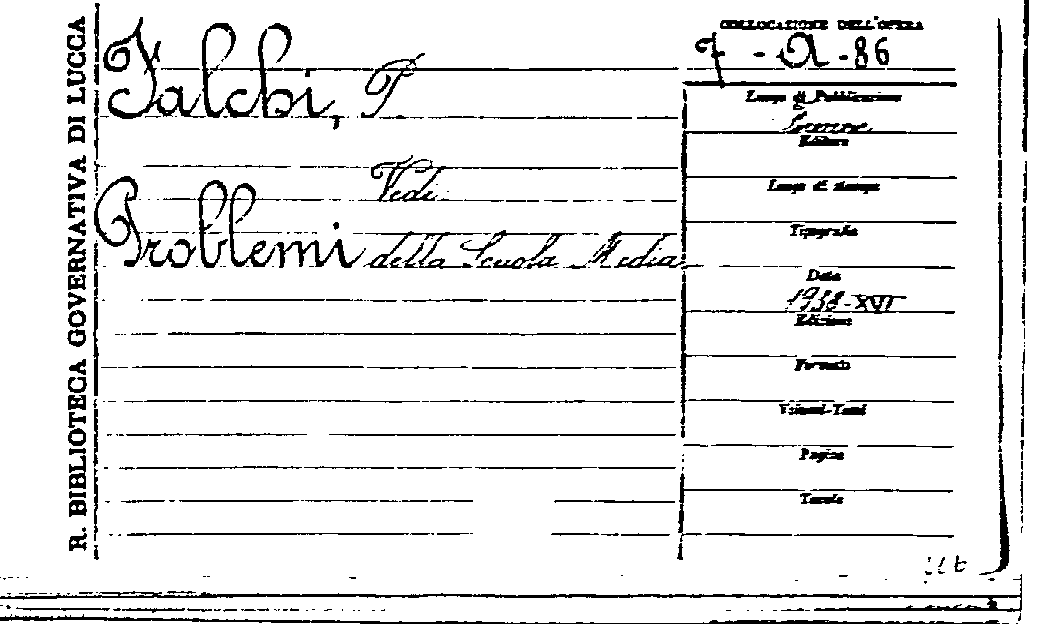 R. BIBLIOTECA GOVERNATIVA DI LUCCA
Falchi, P
Vedi
Problemi della Scuola Media
COLLOCAZIONE DELL'OPERA
7 - A - 86
Luogo di Pubblicazione
Editore
Luogo di stampa
Tipografia
Data
1938-XVI
Edizione
Formato
Volumi-Tomi
Pagine
Tavole